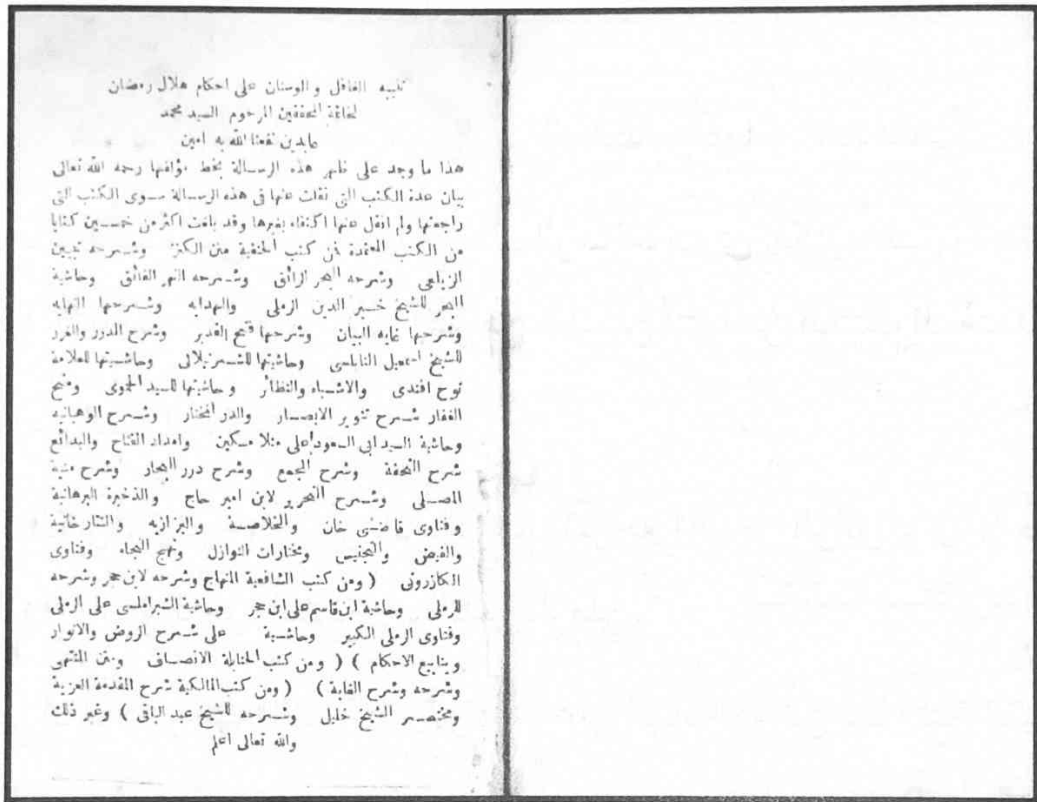 تنبيه الغافل والوسنان على احكام هلال رمضان
لخاتمة المحققين المرحوم السيد محمد
عابدين نفعنا الله به امين
هذا ما وجد على ظهر هذه الرسالة بخط مؤلفها رحمه الله تعالى
بيان عدة الكتب التى نقلت عنها فى هذه الرسالة سوى الكتب التى
راجعتها ولم انقل عنها اكتفاء بغيرها وقد بلغت اكثر من خمسين كتابا
من الكتب المعتمدة فن كتب الحنفية متن الكنز وشرحه تبيين
الزيلعى وشرحه البحر الرائق وشرحه النهر الفائق وحاشية
البحر للشيخ خير الدين الرملى والهدايه وشرحها النهايه
وشرحها غايه البيان وشرحها فتح القدير وشرح الدرر والغرر
للشيخ اسمعيل النابلسى وحاشيتها للشرنبلالى وحاشيتها للعلامة
نوح افندى والاشباه والنظائر وحاشيتها للسيد الحموى ومنح
الغفار شرح تنوير الابصار والدر المختار وشرح الوهبانيه
وحاشية السيد ابى السعود على منلا مسكين وامداد الفتاح والبدائع
شرح التحفة وشرح المجمع وشرح درر البحار وشرح منية
المصلى وشرح التحرير لابن امير حاج والذخيرة البرهانية
وفتاوى قاضى خان والخلاصة والبزازيه والتتارخانية
والفيض والتجنيس ومختارات النوازل ونهج النجاه وفتاوى
الكازرونى ( ومن كتب الشافعية المنهاج وشرحه لابن حجر وشرحه
للرملى وحاشية ابن قاسم على ابن حجر وحاشية الشبراملسى على الرملى
وفتاوى الرملى الكبير وحاشية على شرح الروض والانوار
وينابيع الاحكام ) ( ومن كتب الحنابلة الانصاف ومتن المنتهى
وشرحه وشرح الغاية ) ( ومن كتب المالكية شرح المقدمة العزية
ومختصر الشيخ خليل وشرحه للشيخ عبد الباقى ) وغير ذلك
والله تعالى اعلم